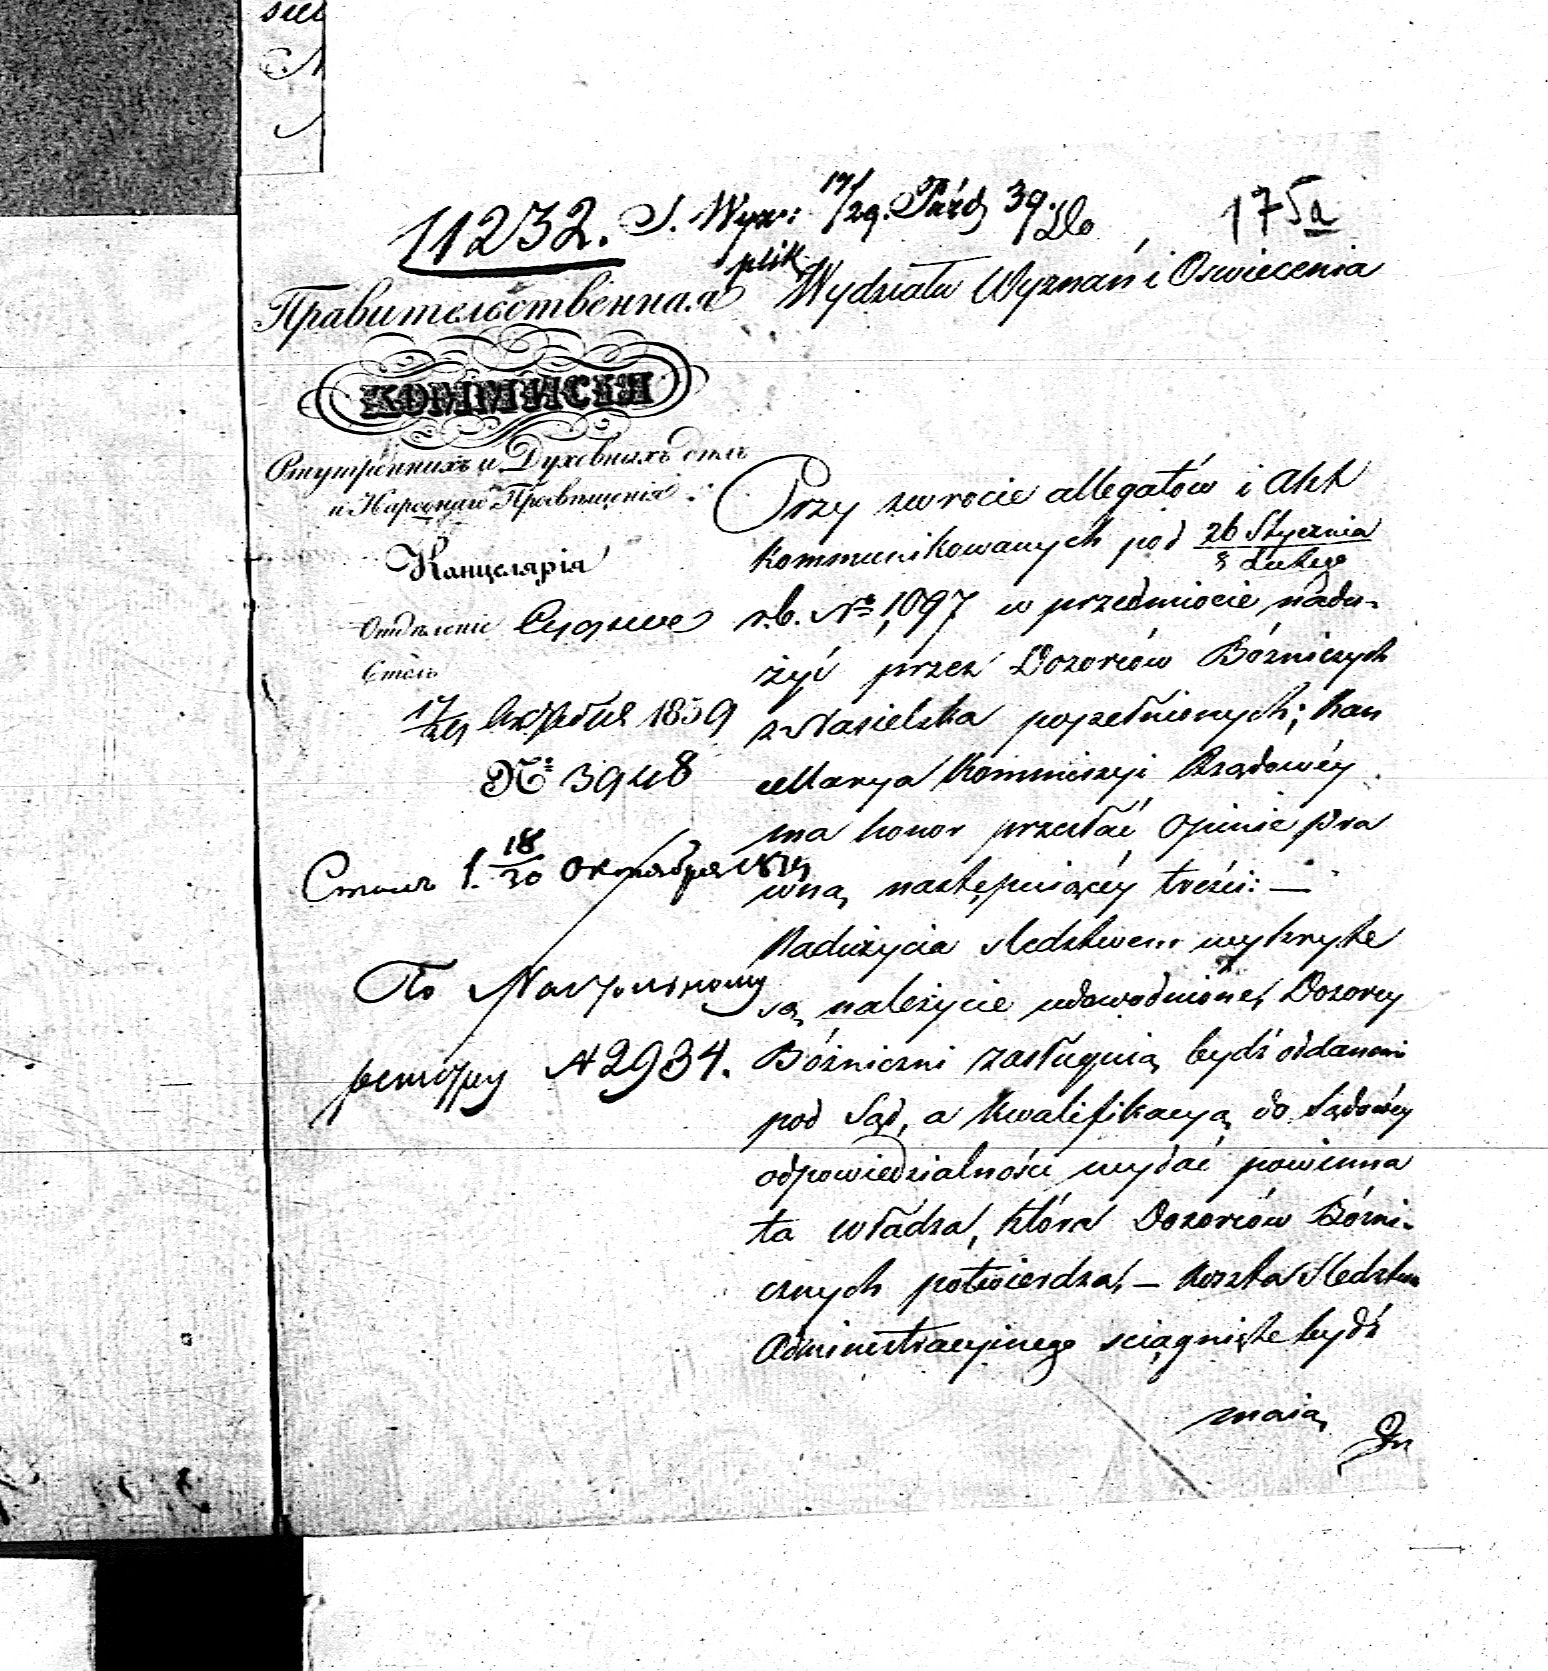 11232. S. Wyz: 17/29. Paźdz 39. Do 175a
plik
Wydziału Wyznań i Oswiecenia
Правительственная
КОММИСІЯ
Внутреннихъ и Духовныхъ дѣлъ
и Народнаго Просвѣщенія
Канцелярія
Отдѣленіе
Столъ
17/29 Октября 1839
№ 3948
Столъ 1. 18/30 Октября 1839
По Настольному
регистру № 2934.
Przy zwrocie allegatów i Akt
kommunikowanych pod 26 Stycznia / Lutego
r.b. № 1,097 w przedmiocie nadu-
żyć przez Dozorców Bóżniczych
z Nasielska popełnionych; Kan
cellarya Kommissyi Rządowéy
ma honor przesłać Opinię pra
wną następuiącéy treści: —
Nadużycia sledztwem wykryte
są należycie udowodnione, Dozorcy
Bóżniczni zasługuią bydź oddanemi
pod Sąd, a kwalifikacyą do Sądowéy
odpowiedzialności wydać powinna
ta władza, która Dozorców Bóżni-
cznych potwierdza, — Koszta Sledztwa
Administracyinego sciągnięte bydź
maią